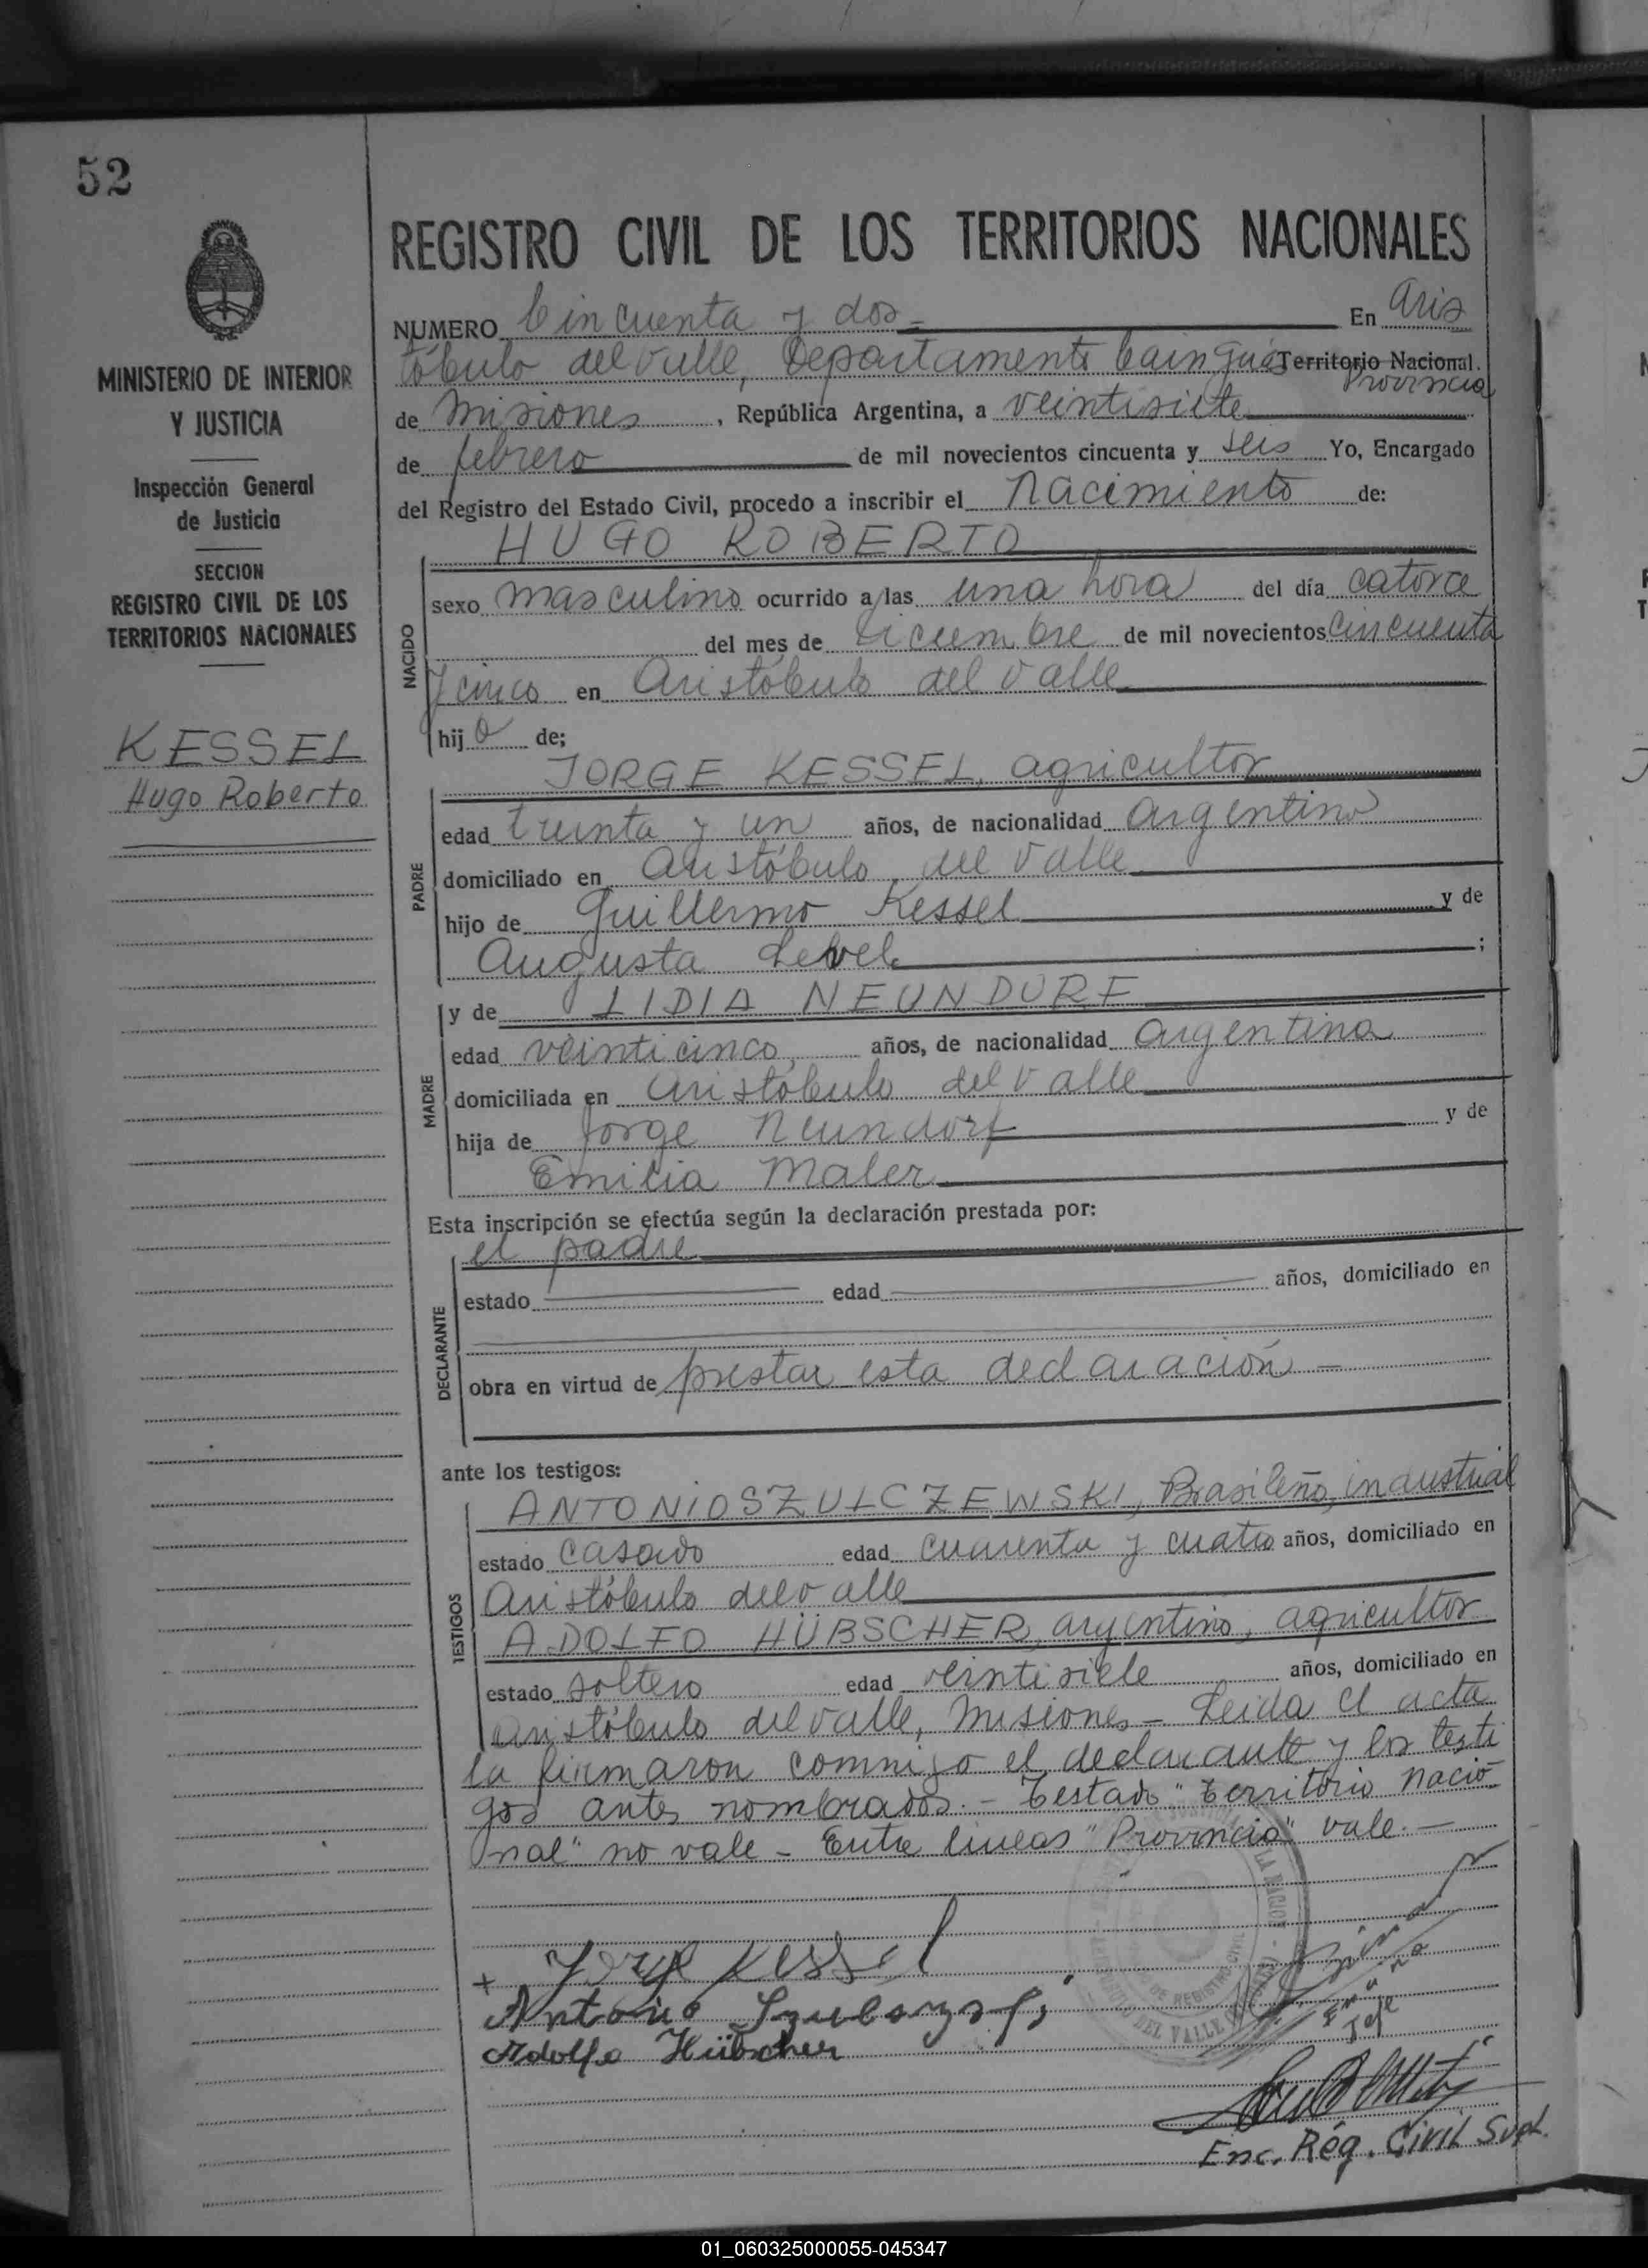 52
MINISTERIO DE INTERIOR
Y JUSTICIA
Inspección General
de Justicia
SECCION
REGISTRO CIVIL DE LOS
TERRITORIOS NACIONALES
KESSEL
Hugo Roberto
REGISTRO CIVIL DE LOS TERRITORIOS NACIONALES
NUMERO Cincuenta y dos En Aris
tóbulo del valle, Departamento Cainguás Territorio Nacional.
Provincia
de Misiones, República Argentina, a veintisiete
de febrero de mil novecientos cincuenta y seis Yo, Encargado
del Registro del Estado Civil, procedo a inscribir el Nacimiento de:
HUGO ROBERTO
NACIDO
sexo masculino ocurrido a las una hora del día catorce
del mes de diciembre de mil novecientos cincuenta
y cinco en Aristóbulo del valle
hij o de;
PADRE
JORGE KESSEL, agricultor
edad treinta y un años, de nacionalidad argentino
domiciliado en Aristóbulo del Valle
hijo de Guillermo Kessel y de
Augusta ;
MADRE
y de LIDIA NEUNDORF
edad veinticinco, años, de nacionalidad argentina
domiciliada en Aristóbulo del valle
hija de Jorge Neundorf y de
Emilia Maler
Esta inscripción se efectúa según la declaración prestada por:
DECLARANTE
el padre
estado edad años, domiciliado en
obra en virtud de prestar esta declaración -
ante los testigos:
TESTIGOS
ANTONIO SZULCZEWSKI, Brasileño, industrial
estado casado edad cuarenta y cuatro años, domiciliado en
Aristóbulo del valle
ADOLFO HÜBSCHER, argentino, agricultor
estado soltero edad veintisiete años, domiciliado en
Aristóbulo del valle, Misiones - Leida el acta
la firmaron conmigo el declarante y los testi
gos antes nombrados. - Testado "Territorio Nacio
nal" no vale - Entre lineas "Provincia" vale. -
+ Jorge Kessel
Antonio
Adolfo Hübscher
Jefe
Enc. Rég. Civil Supl.
01_060325000055-045347